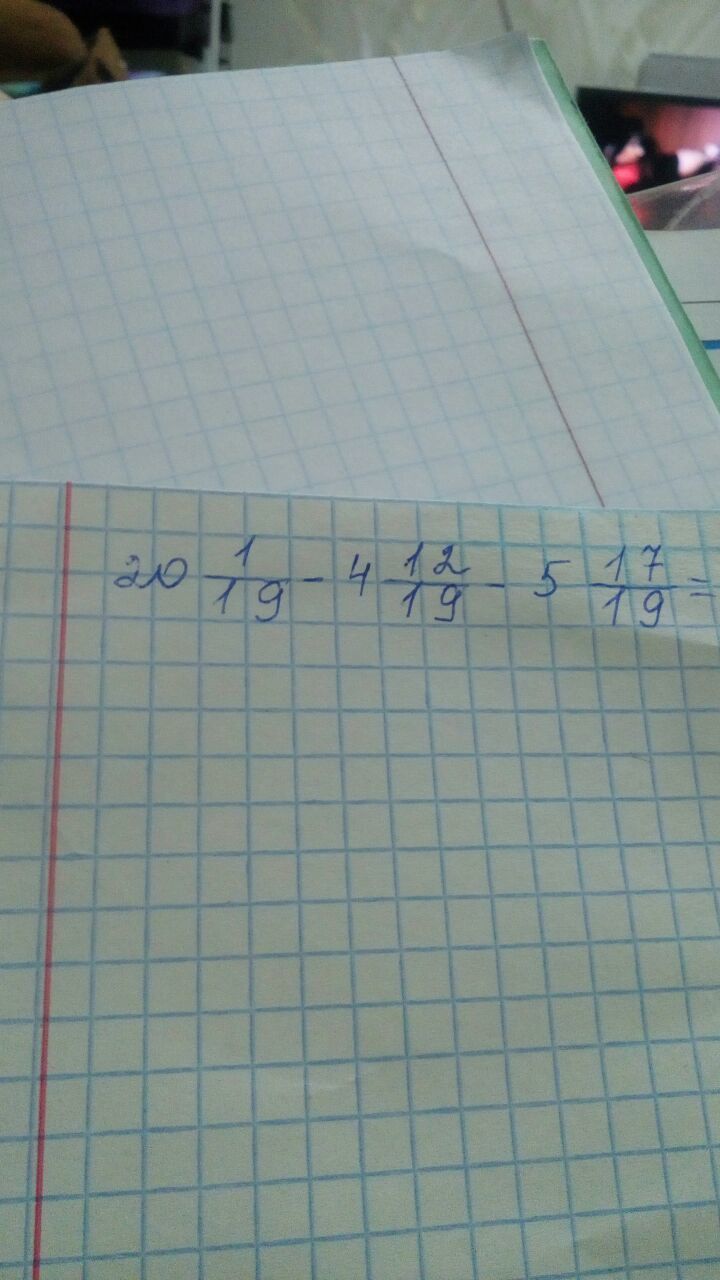 20 1/19 - 4 12/19 - 5 17/19 =